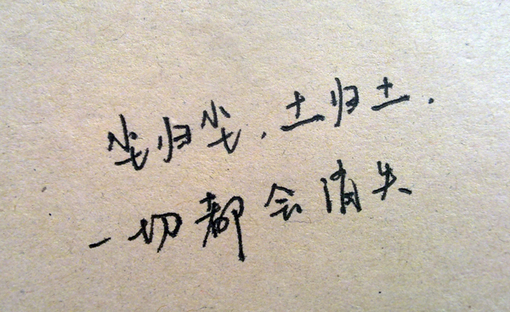 尘归尘，土归土.
一切都会消失